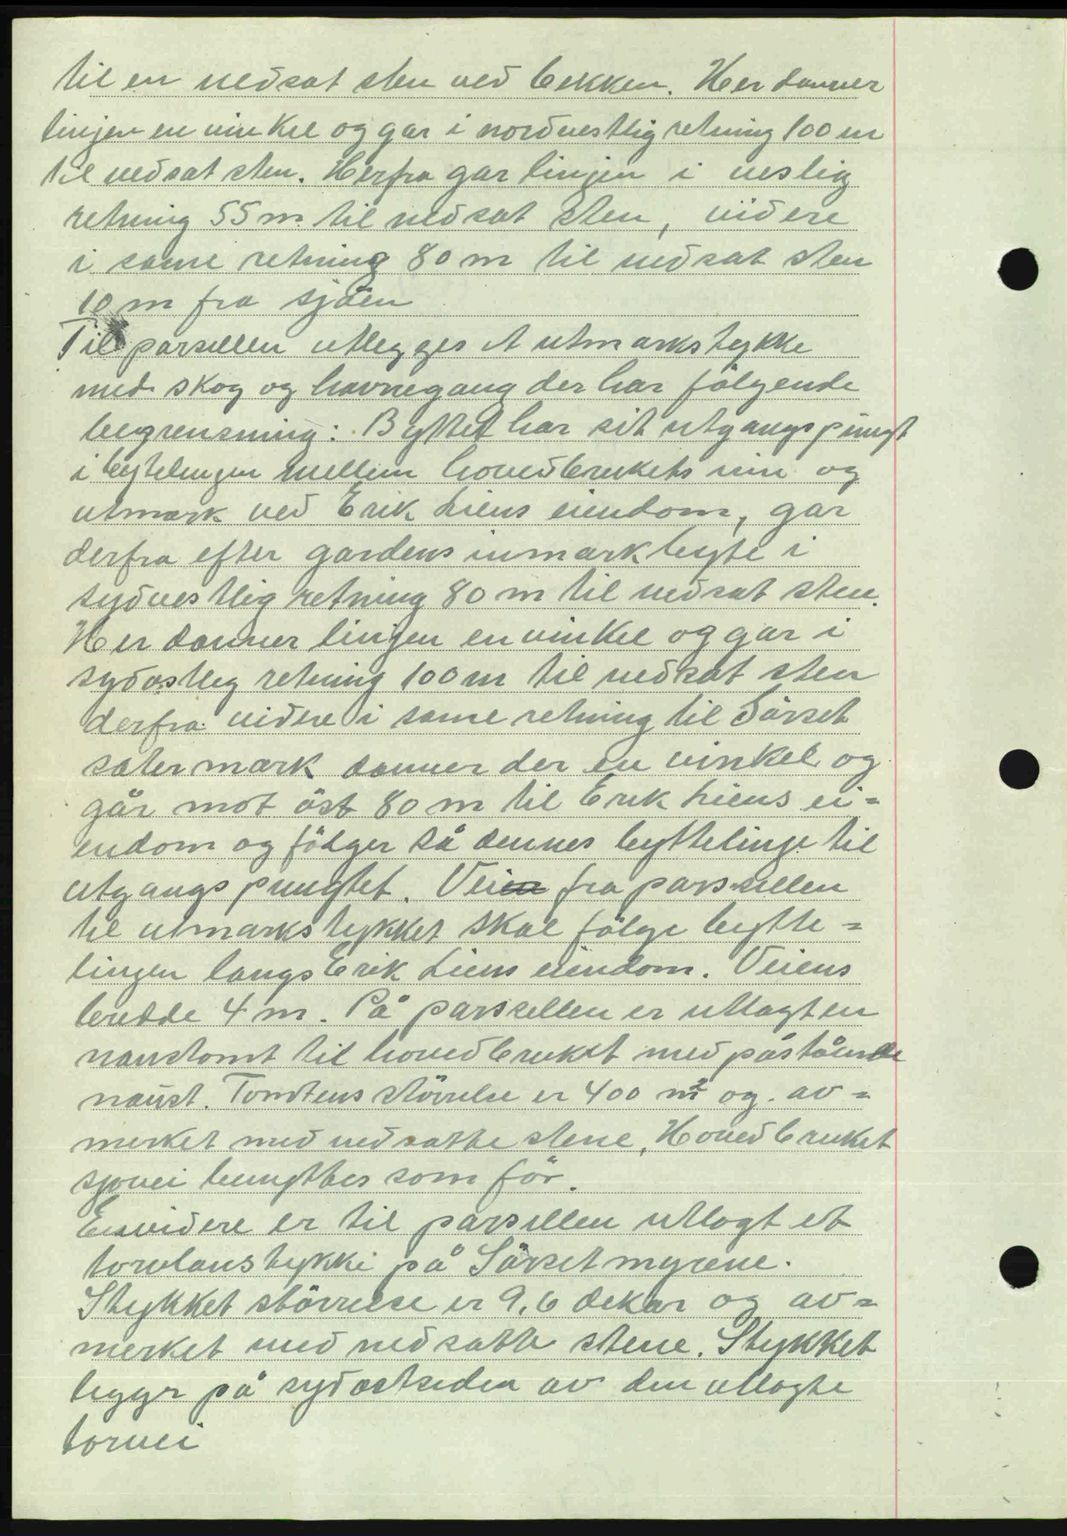 til en nedsat sten ved bekken. Her danner
linjen en vinkel og gar i nordvestlig retning 100 m
til nedsat sten. Herfra gar linjen i veslig
retning 55 m til nedsat sten, videre
i same retning 80 m til nedsat sten
10 m fra sjöen
Til parsellen utlegges et utmarkstykke
med skog og havnegang der har fölgende
begrensning: Byttet har sit utgangspungt
i bytelingen mellem hovedbrukets inn og
utmark ved Erik Liens eiendom, gar
derfra efter gardens inmarkbyte i
sydvestlig retning 80 m til nedsat sten.
Her danner linjen en vinkel og gar i
sydostleg retning 100 m til nedsat sten
derfra videre i same retning til Särset
satermark danner der en vinkel og
går mot öst 80 m til Erik Liens ei=
endom og fölger så dennes byttelinje til
utgangspungtet. Vei fra parssellen
til utmarkstykket skal fölge bytte=
lingen langs Erik Liens eiendom. Veiens
bredde 4 m. På parssellen er utlagt en
naustomt til hovedbruket med påstående
naust. Tomtens störrelse er 400 m² og av=
merket med nedsatte stene. Hovedbruket
sjovei benyttes som för.
Envidere er til parsellen utlagt et
torvlanstykke på Särsetmyrene.
Stykket störrelse er 9,6 dekar og av=
merket med nedsatte stene. Stykket
ligger på sydostsiden av den utlagte
torvei